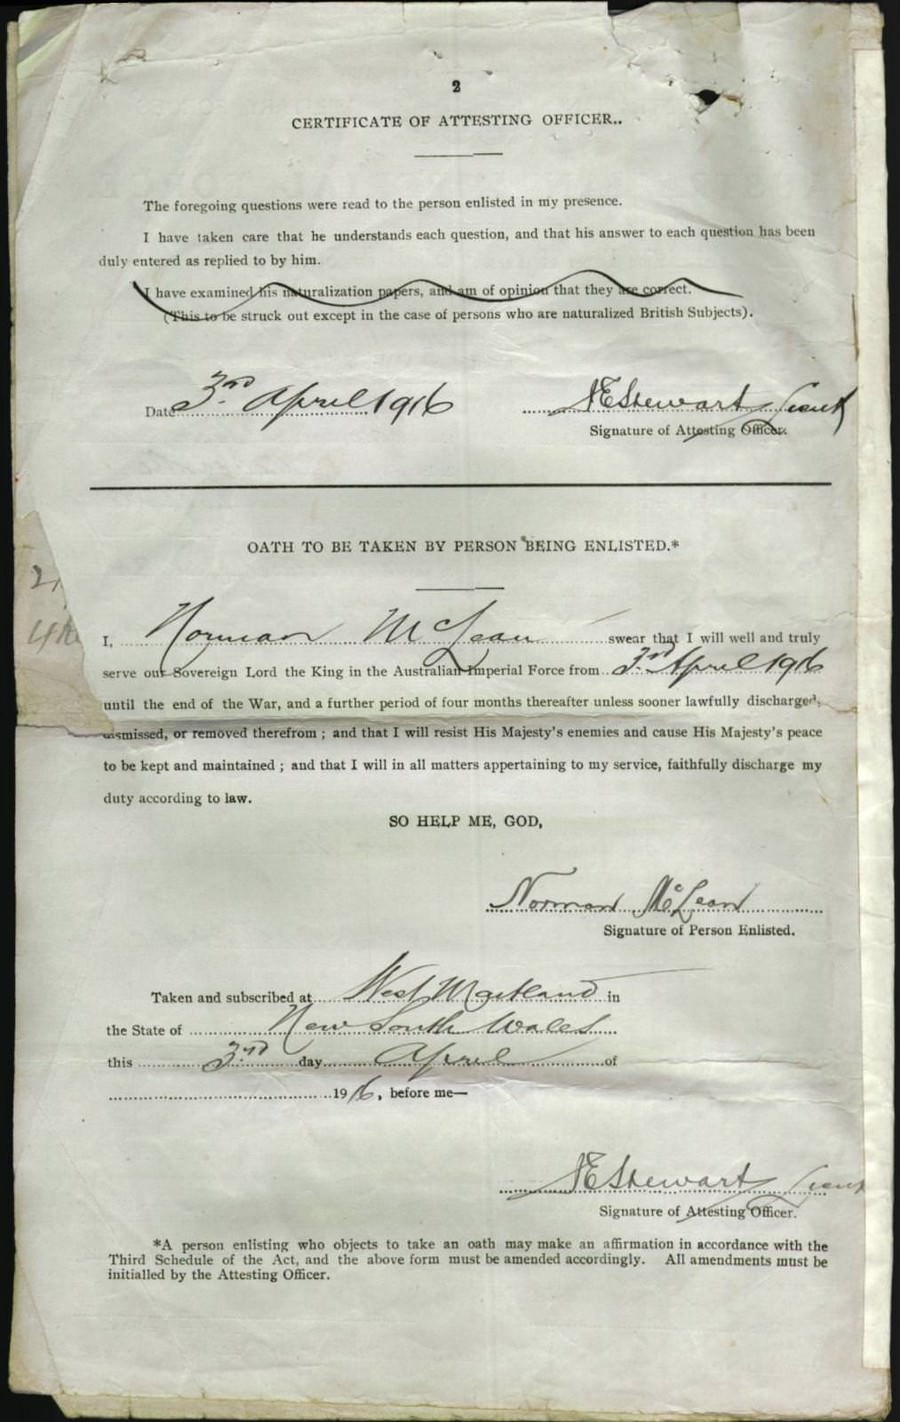 2
CERTIFICATE OF ATTESTING OFFICER..
The foregoing questions were read to the person enlisted in my presence.
I have taken care that he understands each question, and that his answer to each question has been
duly entered as replied to by him.
I have examined his naturalization papers, and am of opinion that they are correct.
(This to be struck out except in the case of persons who are naturalized British Subjects).
Date 3rd April 1916 NE Stewart Lieut
Signature of Attesting Officer.
OATH TO BE TAKEN BY PERSON BEING ENLISTED.*
I, Norman McLean swear that I will well and truly
serve our Sovereign Lord the King in the Australian Imperial Force from 3rd April 1916
until the end of the War, and a further period of four months thereafter unless sooner lawfully discharged,
dismissed, or removed therefrom ; and that I will resist His Majesty's enemies and cause His Majesty's peace
to be kept and maintained ; and that I will in all matters appertaining to my service, faithfully discharge my
duty according to law.
SO HELP ME, GOD,
Norman McLean
Signature of Person Enlisted.
Taken and subscribed at West Maitland in
the State of New South Wales
this 3rd day April of
1916, before me—
NE Stewart Lieut
Signature of Attesting Officer.
*A person enlisting who objects to take an oath may make an affirmation in accordance with the
Third Schedule of the Act, and the above form must be amended accordingly. All amendments must be
initialled by the Attesting Officer.